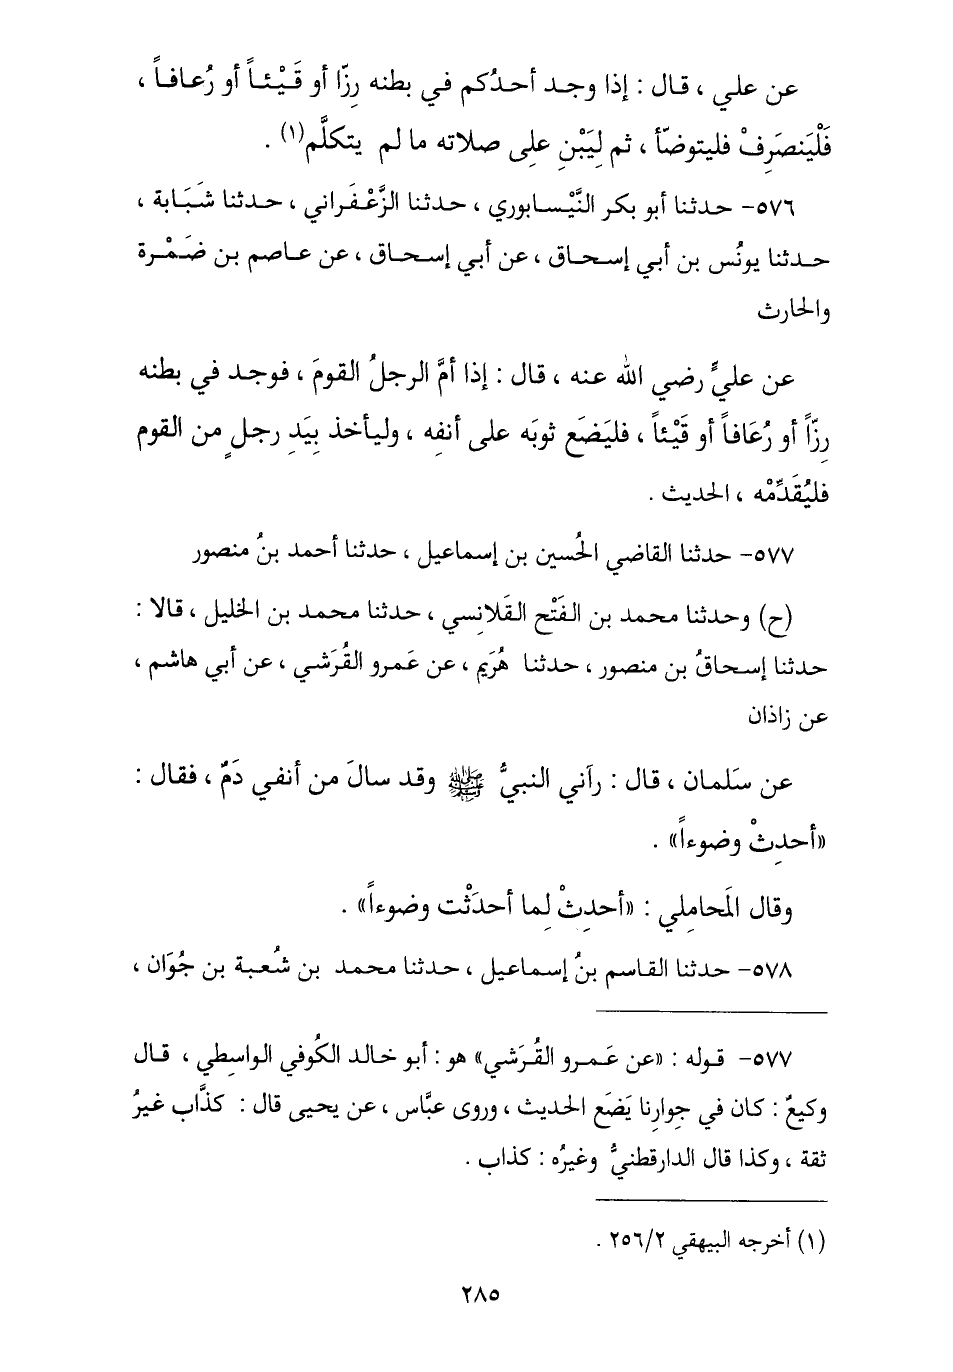 عن علي ، قال : إذا وجد أحدُكم في بطنه رِزّا أو قَيْئاً أو رُعافاً ،
فَلْيَنصَرِفْ فليتوضّأ ، ثم لِيَبْنِ على صلاته ما لم يتكلَّم(١) .
٥٧٦- حدثنا أبو بكر النَّيْسابوري ، حدثنا الزَّعْفَراني ، حدثنا شَبَابة ،
حدثنا يونُس بن أبي إسحاق ، عن أبي إسحاق ، عن عاصم بن ضَمْرة
والحارث
عن عليٍّ رضي الله عنه ، قال : إذا أمَّ الرجلُ القومَ ، فوجد في بطنه
رِزّاً أو رُعَافاً أو قَيْئاً ، فليَضَع ثوبَه على أنفِه ، وليأخذ بِيَدِ رجلٍ من القوم
فليُقَدِّمْه ، الحديث .
٥٧٧- حدثنا القاضي الحُسين بن إسماعيل ، حدثنا أحمد بنُ منصور
(ح) وحدثنا محمد بن الفَتْح القَلانِسي ، حدثنا محمد بن الخليل ، قالا :
حدثنا إسحاقُ بن منصور ، حدثنا هُرَيم ، عن عَمرو القُرَشي ، عن أبي هاشم ،
عن زاذان
عن سَلمان ، قال : رآني النبيُّ ﷺ وقد سالَ من أنفي دَمٌ ، فقال :
«أحدِثْ وضوءاً» .
وقال المَحاملِي : «أحدِثْ لِما أحدَثْت وضوءاً» .
٥٧٨- حدثنا القاسم بنُ إسماعيل ، حدثنا محمد بن شُعبة بن جُوَان ،
٥٧٧- قوله : «عن عَمرو القُرَشي» هو : أبو خالد الكُوفي الواسِطي ، قال
وكيعٌ : كان في جِوارِنا يَضَع الحديث ، وروى عبَّاس ، عن يحيى قال : كذَّاب غيرُ
ثقة ، وكذا قال الدارقطنيُّ وغيرُه : كذاب .
(١) أخرجه البيهقي ٢٥٦/٢ .
٢٨٥